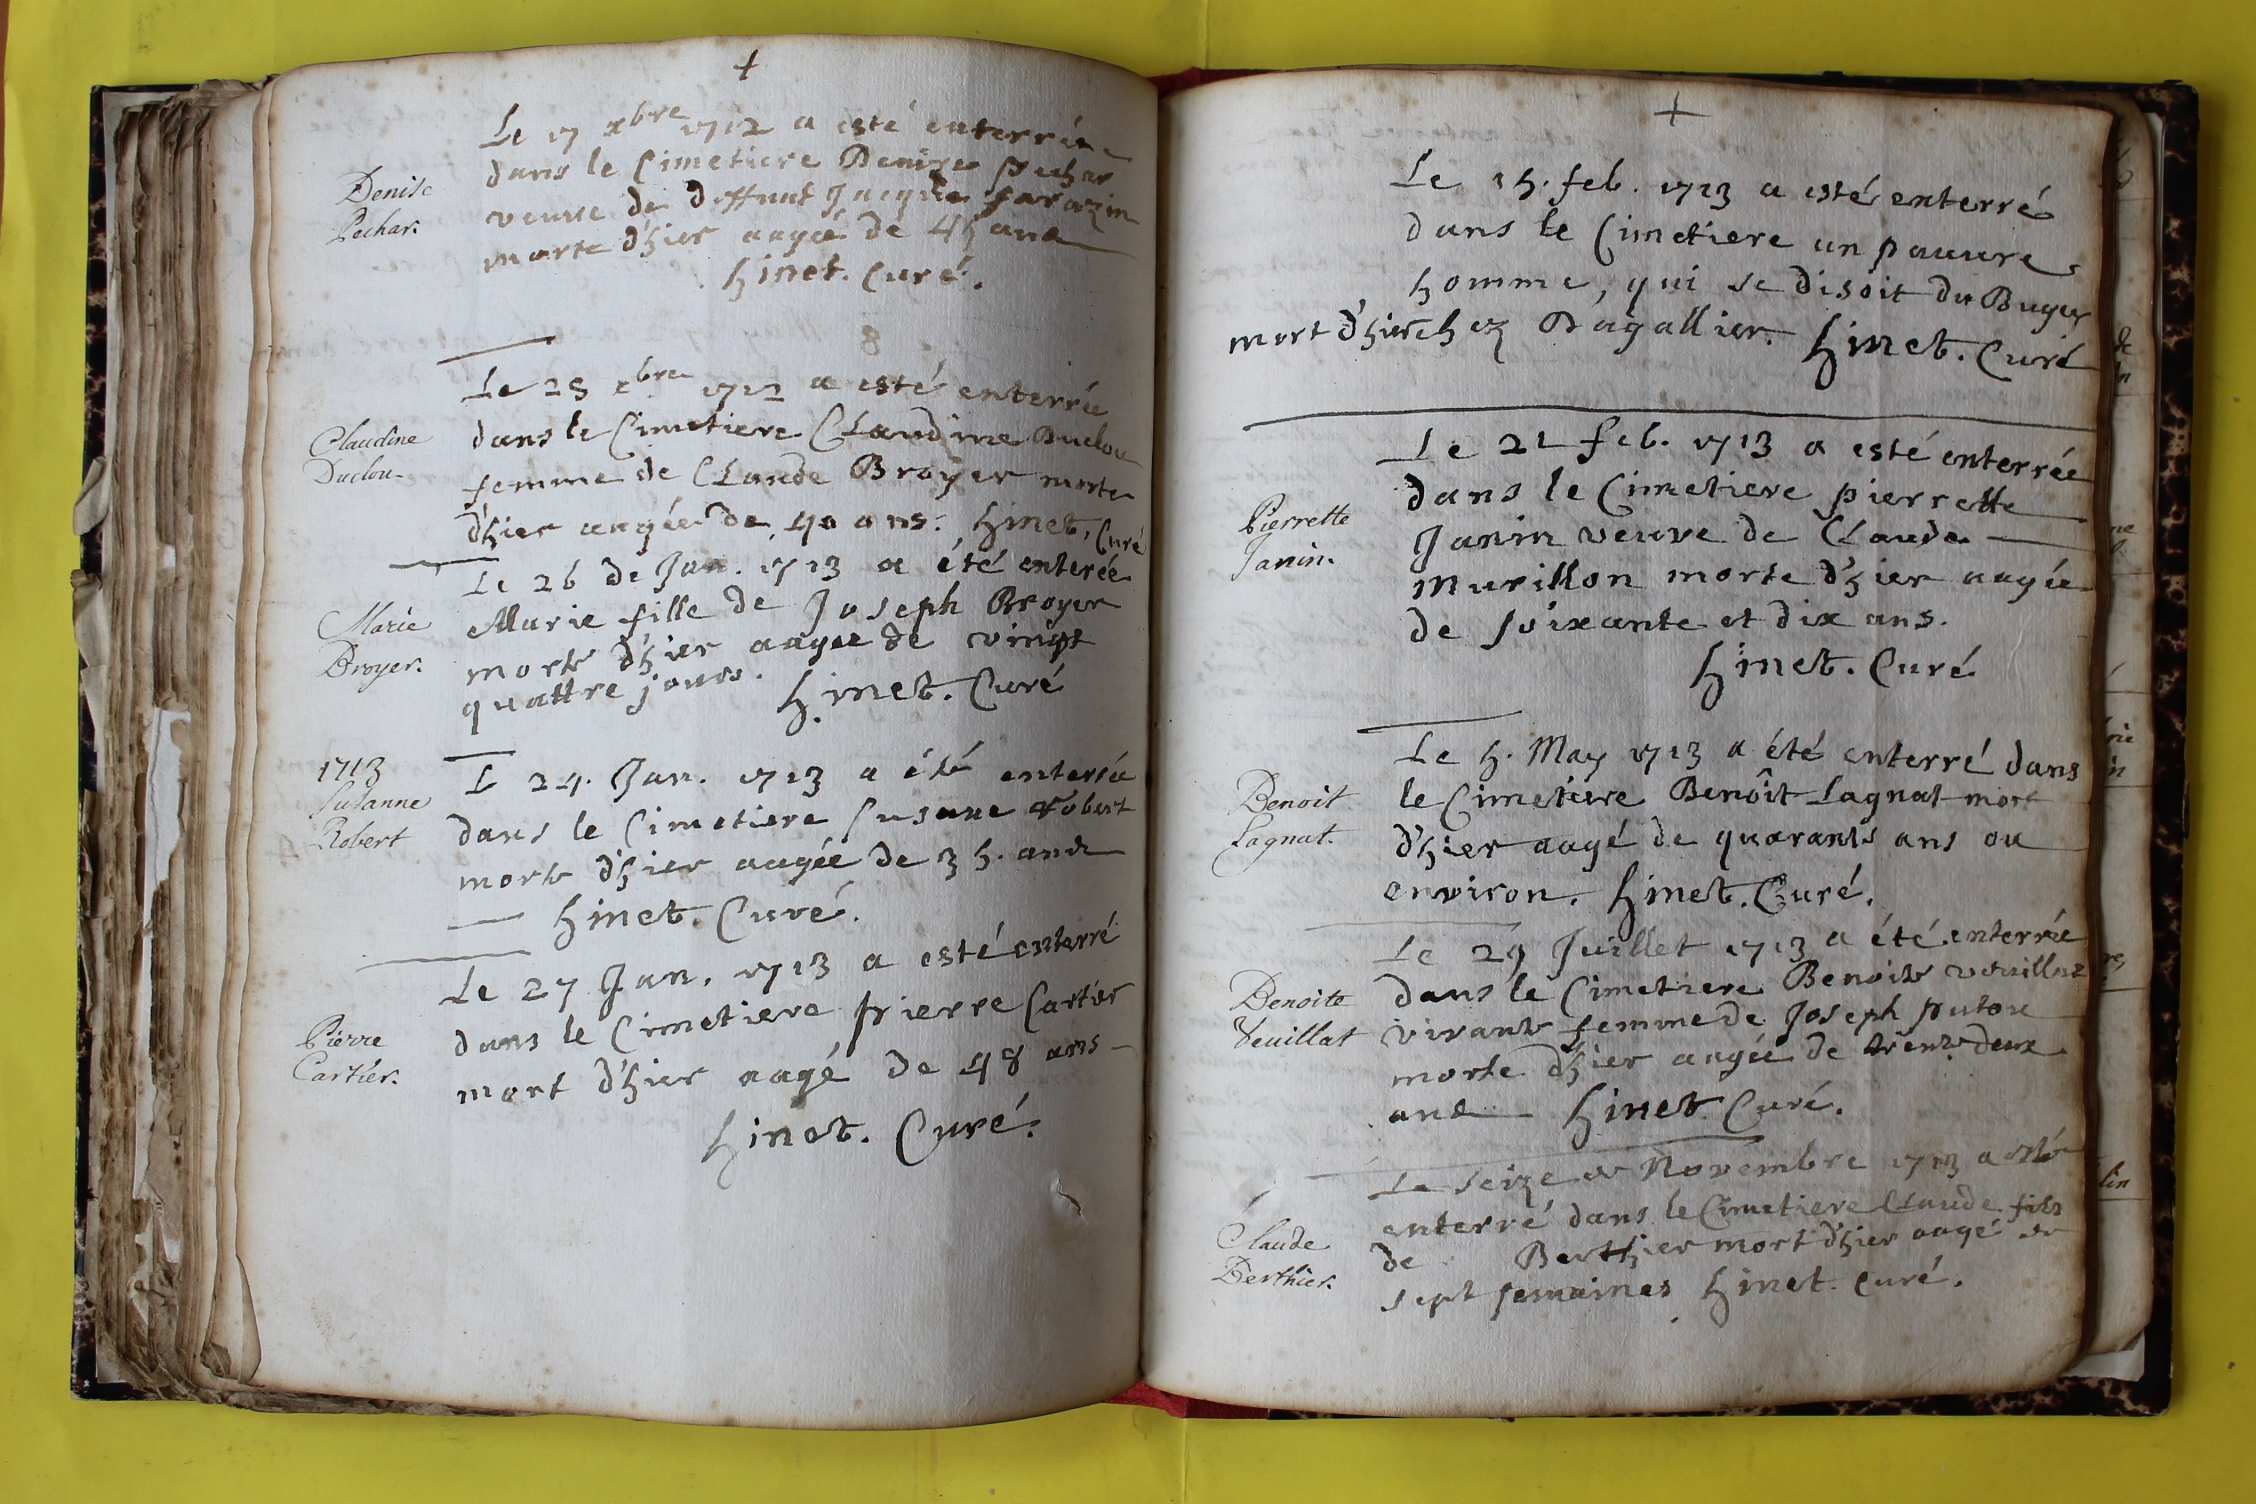 +
Le 17 xbre 1712 a esté enterrée
dans le Cimetiere Denize pechar
Denise
Pechar.
veuve de deffunt Jacque farazin
morte d'hier aagée de 45 ans
hinet. Curé.
8
Le 25 xbre 1712 a esté enterrée
dans le Cimetiere Claudine Duclou
Claudine
Duclou
femme de Claude Broyer morte
d'hier aagée de 40 ans. hinet. Curé
Le 26 de Jan. 1713 a été enterée
Marie fille de Joseph Broyer
Marie
Broyer.
morte d'hier aagee de vingt
quattre jours. hinet. Curé
1713
Susanne
Robert
L 24. Jan. 1713 a été enterrée
dans le Cimetiere Susane Robert
morte d'hier aagée de 35. ans
hinet. Curé.
Le 27 Jan. 1713 a esté enterré
dans le Cimetiere pierre Cartier
Pierre
Cartier.
mort d'hier aagé de 48 ans
hinet. Curé.
+
Le 15. feb. 1713 a esté enterré
dans le Cimetiere un pauvre
homme, qui se disoit du Bugey
mort d'hier chez Dagallier. hinet. Curé
Le 21 feb. 1713 a esté enterrée
dans le Cimetiere pierrette
Pierrette
Janin.
Janin veuve de Claude
Murillon morte d'hier aagée
de soixante et dix ans.
hinet. Curé
Le 5. May 1713 a été enterré dans
le Cimetiere Benoît Lagnat mort
Benoit
Lagnat.
d'hier aagé de quarante ans ou
environ. hinet. Curé.
Le 29 Juillet 1713 a été enterrée
dans le Cimetiere Benoite
Benoite
Veuillat
vivante femme de Joseph Dutour
morte d'hier aagée de trente deux
ans hinet Curé.
Le seize de Novembre 1713 a esté
enterré dans le Cimetiere Claude fils
Claude
Berthier.
de Berthier mort d'hier aagé de
sept semaines hinet. Curé.